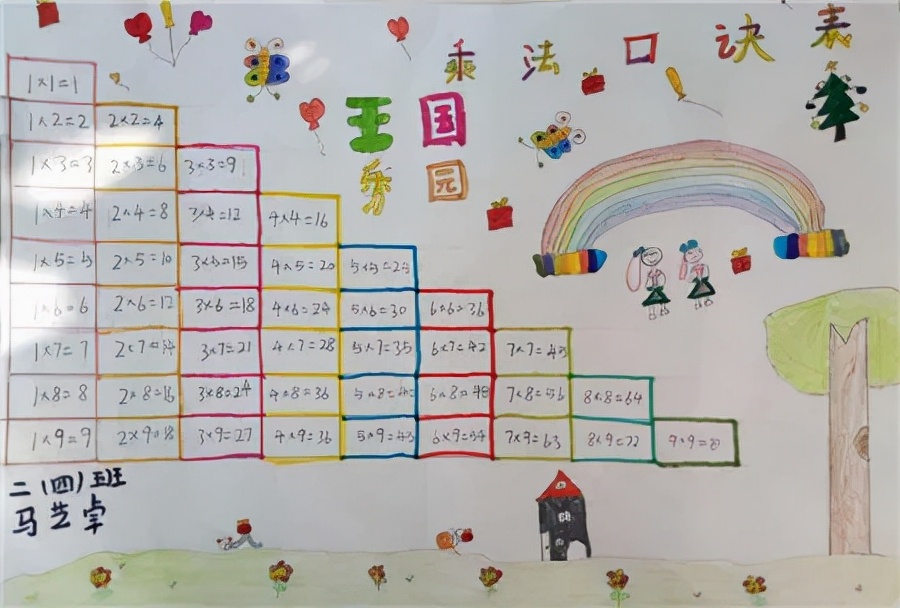 乘法口诀表
王国
乐园
1×1=1
1×2=2 2×2=4
1×3=3 2×3=6 3×3=9
1×4=4 2×4=8 3×4=12 4×4=16
1×5=5 2×5=10 3×5=15 4×5=20 5×5=25
1×6=6 2×6=12 3×6=18 4×6=24 5×6=30 6×6=36
1×7=7 2×7=14 3×7=21 4×7=28 5×7=35 6×7=42 7×7=
1×8=8 2×8=16 3×8=24 4×8=36 5×8= 6×8=48 7×8=56 8×8=64
1×9=9 2×9=18 3×9=27 4×9=36 5×9=45 6×9=54 7×9=63 8×9=72 9×9=
二(四)班
马艺卓